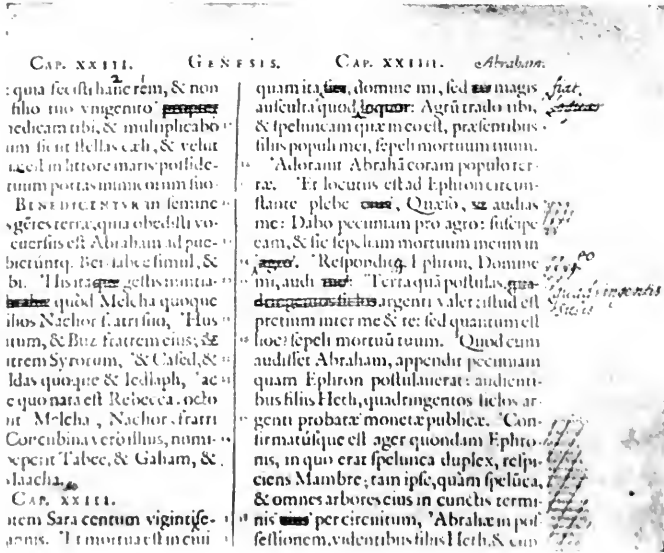 CAP. XXIII. GENESIS. CAP. XXIIII. Abraham.
: quia fecisti hanc rem, & non
filio tuo vnigenito propter
nedicam tibi, & multiplicabo
um sicut stellas cæli, & velut
in littore maris posside-
tuum portas inimicorum suo-
BENEDICENTVR in semine
gẽtes terræ, quia obedisti vo-
cuersus est Abraham ad pue-
bieruntq. Bersabee simul, &
bi. His itaque gestis nuntia-
quòd Melcha quoque
ilios Nachor fratri suo, Hus
itum, & Buz fratrem eius; &
atrem Syrorum, & Cased, &
ldas quoque & Iedlaph, ac
e quo nata est Rebecca. octo
it Melcha, Nachor fratri
Concubina verò illius, nomi-
peperit Tabee, & Gaham, &
Maacha.
CAP. XXIII.
utem Sara centum vigintise-
annis. Et mortua est in ciui
quam ita fiet, domine mi, sed magis
ausculta quod loquor: Agrũ trado tibi,
& speluncam quæ in eo est, præsentibus
filiis populi mei, sepeli mortuum tuum.
Adorauit Abrahã coram populo ter-
ræ. Et locutus est ad Ephron circun-
stante plebe, Quæso, audias
me: Dabo pecuniam pro agro: suscipe
eam, & sic sepeliam mortuum meum in
agro. Responditq. Ephron, Domine
mi, audi me: Terra quã postulas, qua-
dringentos siclos argenti valet: istud est
pretium inter me & te: sed quantum est
hoc? sepeli mortuũ tuum. Quod cum
audisset Abraham, appendit pecuniam
quam Ephron postulauerat: audienti-
bus filiis Heth, quadringentos siclos ar-
genti probatæ monetæ publicæ. Con-
firmatúsque est ager quondam Ephro-
nis, in quo erat spelunca duplex, respi-
ciens Mambre; tam ipse, quàm spelũca,
& omnes arbores eius in cunctis termi-
nis per circuitum, Abrahæ in pos
sessionem, videntibus filiis Heth, & cun
fiat
quadringentis
siclis